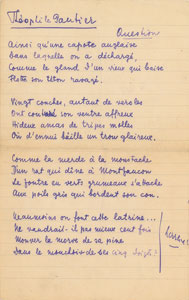 Théophile Gautier
Question
Ainsi qu'une capote anglaise
Dans laquelle on a déchargé,
Comme le gland d'un vieux qui baise
Flotte son téton ravagé.
Vingt couches, autant de véroles
Ont son ventre affreux
Hideux amas de tripes molles
Où d'ennui bâille un trou glaireux.
Comme la merde à la moustache
D'un rat qui dîne à Montfaucon
Le foutre en verts grumeaux s'attache
Aux poils gris qui bordent son con.
on font cette latrine...
Ne vaudrait-il pas mieux cent fois
Moucher la morve de sa pine
Dans le mouchoir de ses cinq doigts?